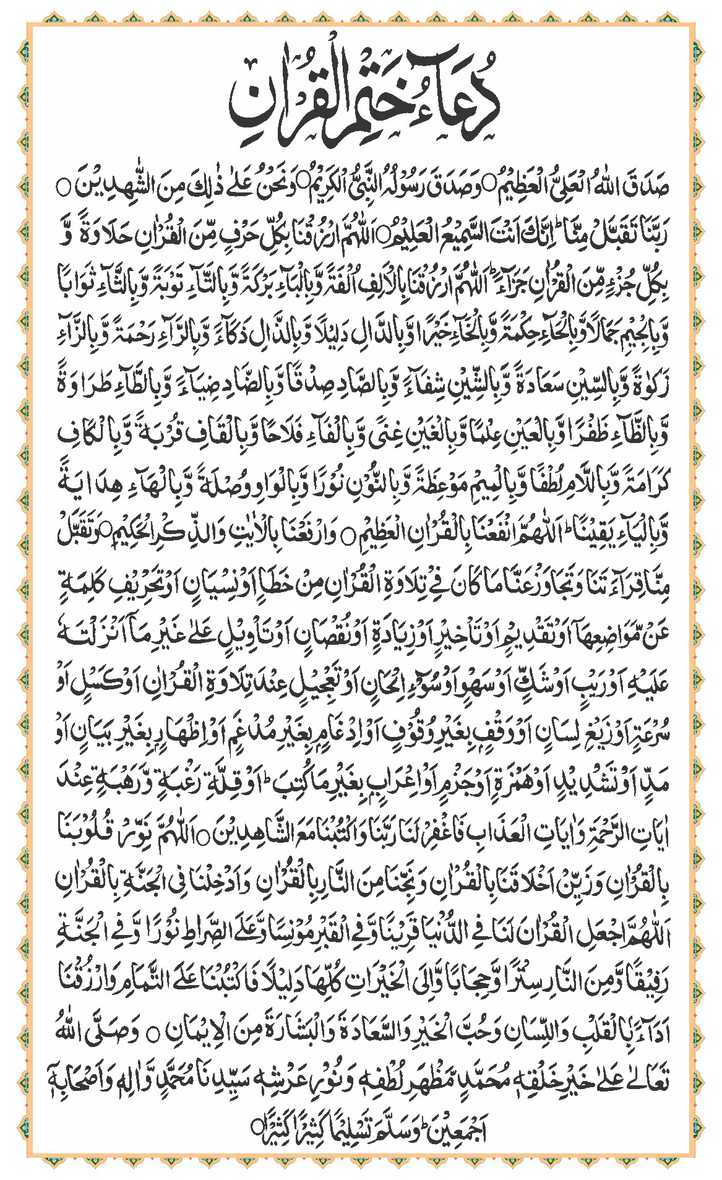 دُعَآءُ خَتْمِ الْقُرْاٰنِ
صَدَقَ اللّٰهُ الْعَلِيُّ الْعَظِيْمُ○ وَصَدَقَ رَسُوْلُهُ النَّبِيُّ الْكَرِيْمُ○ وَنَحْنُ عَلٰى ذٰلِكَ مِنَ الشّٰهِدِيْنَ ○
رَبَّنَا تَقَبَّلْ مِنَّا ؕ اِنَّكَ اَنْتَ السَّمِيْعُ الْعَلِيْمُ○ اَللّٰهُمَّ ارْزُقْنَا بِكُلِّ حَرْفٍ مِّنَ الْقُرْاٰنِ حَلَاوَةً وَّ
بِكُلِّ جُزْءٍ مِّنَ الْقُرْاٰنِ جَزَآءً ؕ اَللّٰهُمَّ ارْزُقْنَا بِالْاَلِفِ اُلْفَةً وَّبِالْبَآءِ بَرَكَةً وَّبِالتَّآءِ تَوْبَةً وَّبِالثَّآءِ ثَوَابًا
وَّبِالْجِيْمِ جَمَالًا وَّبِالْحَآءِ حِكْمَةً وَّبِالْخَآءِ خَيْرًا وَّبِالدَّالِ دَلِيْلًا وَّبِالذَّالِ ذَكَآءً وَّبِالرَّآءِ رَحْمَةً وَّبِالزَّآءِ
زَكٰوةً وَّبِالسِّيْنِ سَعَادَةً وَّبِالشِّيْنِ شِفَآءً وَّبِالصَّادِ صِدْقًا وَّبِالضَّادِ ضِيَآءً وَّبِالطَّآءِ طَرَاوَةً
وَّبِالظَّآءِ ظَفْرًا وَّبِالْعَيْنِ عِلْمًا وَّبِالْغَيْنِ غِنًى وَّبِالْفَآءِ فَلَاحًا وَّبِالْقَافِ قُرْبَةً وَّبِالْكَافِ
كَرَامَةً وَّبِاللَّامِ لُطْفًا وَّبِالْمِيْمِ مَوْعِظَةً وَّبِالنُّوْنِ نُوْرًا وَّبِالْوَاوِ وُصْلَةً وَّبِالْهَآءِ هِدَايَةً
وَّبِالْيَآءِ يَقِيْنًا ؕ اَللّٰهُمَّ انْفَعْنَا بِالْقُرْاٰنِ الْعَظِيْمِ ○ وَارْفَعْنَا بِالْاٰيٰتِ وَالذِّكْرِ الْحَكِيْمِ○ وَتَقَبَّلْ
مِنَّا قِرَآءَتَنَا وَتَجَاوَزْ عَنَّا مَا كَانَ فِيْ تِلَاوَةِ الْقُرْاٰنِ مِنْ خَطَأٍ اَوْ نِسْيَانٍ اَوْ تَحْرِيْفِ كَلِمَةٍ
عَنْ مَّوَاضِعِهَا اَوْ تَقْدِيْمٍ اَوْ تَأْخِيْرٍ اَوْ زِيَادَةٍ اَوْ نُقْصَانٍ اَوْ تَأْوِيْلٍ عَلٰى غَيْرِ مَآ اَنْزَلْتَهٗ
عَلَيْهِ اَوْ رَيْبٍ اَوْ شَكٍّ اَوْ سَهْوٍ اَوْ سُوْٓءِ اِلْحَانٍ اَوْ تَعْجِيْلٍ عِنْدَ تِلَاوَةِ الْقُرْاٰنِ اَوْ كَسَلٍ اَوْ
سُرْعَةٍ اَوْ زَيْغِ لِسَانٍ اَوْ وَقْفٍ بِغَيْرِ وُقُوْفٍ اَوْ اِدْغَامٍ بِغَيْرِ مُدْغَمٍ اَوْ اِظْهَارٍ بِغَيْرِ بَيَانٍ اَوْ
مَدٍّ اَوْ تَشْدِيْدٍ اَوْ هَمْزَةٍ اَوْ جَزْمٍ اَوْ اِعْرَابٍ بِغَيْرِ مَا كُتِبَ ؕ اَوْ قِلَّةِ رَغْبَةٍ وَّرَهْبَةٍ عِنْدَ
اٰيَاتِ الرَّحْمَةِ وَاٰيَاتِ الْعَذَابِ فَاغْفِرْ لَنَا رَبَّنَا وَاكْتُبْنَا مَعَ الشَّاهِدِيْنَ○ اَللّٰهُمَّ نَوِّرْ قُلُوْبَنَا
بِالْقُرْاٰنِ وَزَيِّنْ اَخْلَاقَنَا بِالْقُرْاٰنِ وَنَجِّنَا مِنَ النَّارِ بِالْقُرْاٰنِ وَاَدْخِلْنَا فِى الْجَنَّةِ بِالْقُرْاٰنِ
اَللّٰهُمَّ اجْعَلِ الْقُرْاٰنَ لَنَا فِى الدُّنْيَا قَرِيْنًا وَّفِى الْقَبْرِ مُوْنِسًا وَّعَلَى الصِّرَاطِ نُوْرًا وَّفِى الْجَنَّةِ
رَفِيْقًا وَّمِنَ النَّارِ سِتْرًا وَّحِجَابًا وَّاِلَى الْخَيْرَاتِ كُلِّهَا دَلِيْلًا فَاكْتُبْنَا عَلَى التَّمَامِ وَارْزُقْنَا
اَدَآءً بِالْقَلْبِ وَاللِّسَانِ وَحُبِّ الْخَيْرِ وَالسَّعَادَةِ وَالْبَشَارَةِ مِنَ الْاِيْمَانِ ○ وَصَلَّى اللّٰهُ
تَعَالٰى عَلٰى خَيْرِ خَلْقِهٖ مُحَمَّدٍ مَّظْهَرِ لُطْفِهٖ وَنُوْرِ عَرْشِهٖ سَيِّدِنَا مُحَمَّدٍ وَّاٰلِهٖ وَاَصْحَابِهٖٓ
اَجْمَعِيْنَ ؕ وَسَلَّمَ تَسْلِيْمًا كَثِيْرًا كَثِيْرًا○